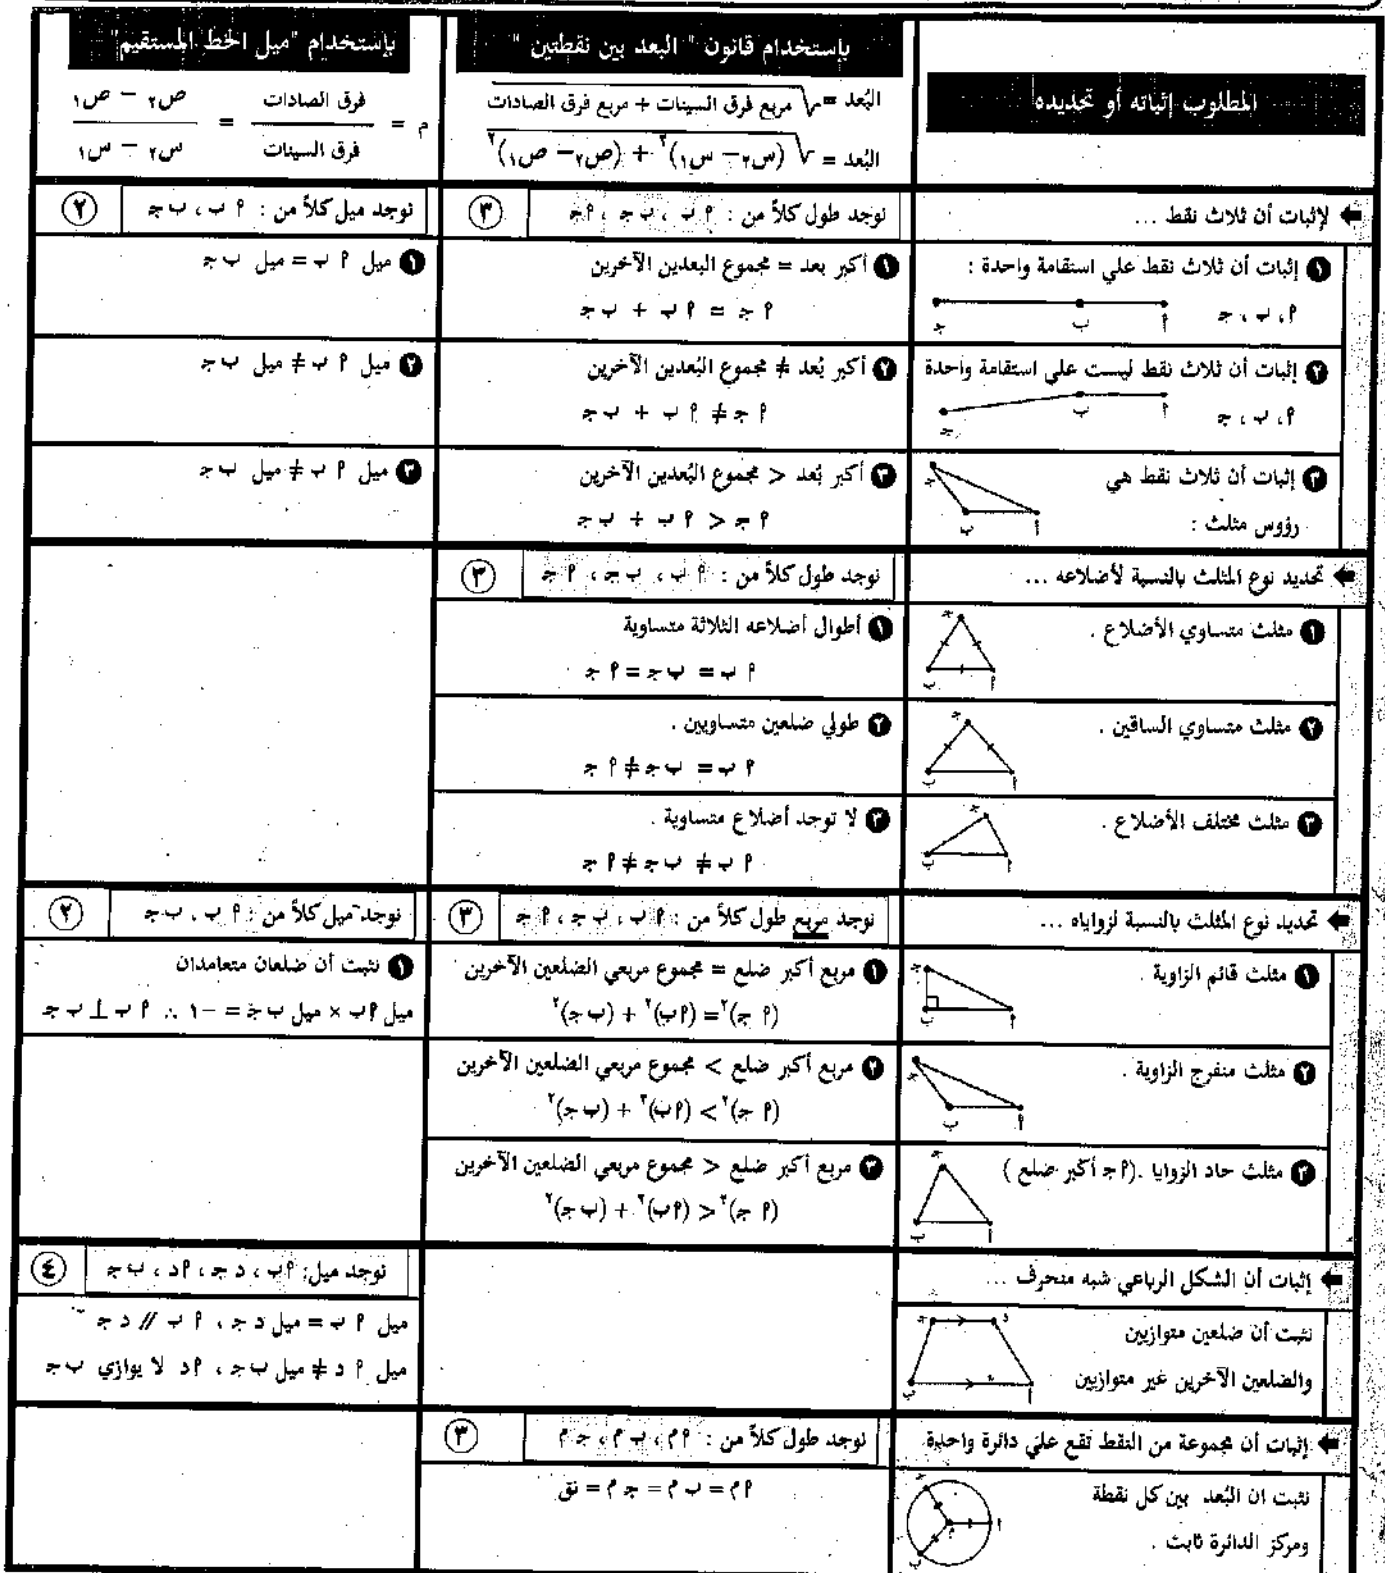 المطلوب إثباته أو تحديده
بإستخدام قانون " البعد بين نقطتين "
البُعد = √ مربع فرق السينات + مربع فرق الصادات
البُعد = √ (س٢ – س١)٢ + (ص٢ – ص١)٢
بإستخدام "ميل الخط المستقيم"
م = فرق الصادات / فرق السينات = ص٢ – ص١ / س٢ – س١
لإثبات أن ثلاث نقط ...
نوجد طول كلاً من : ٩ ب ، ب جـ ، ٩جـ ٣
نوجد ميل كلاً من : ٩ ب ، ب جـ ٢
١ إثبات أن ثلاث نقط علي استقامة واحدة :
٩، ب ، جـ
أ ب جـ
١ أكبر بعد = مجموع البعدين الآخرين
٩ جـ = ٩ ب + ب جـ
١ ميل ٩ ب = ميل ب جـ
٢ إثبات أن ثلاث نقط ليست علي استقامة واحدة
٩، ب ، جـ
أ ب جـ
٢ أكبر بُعد ≠ مجموع البُعدين الآخرين
٩ جـ ≠ ٩ ب + ب جـ
٢ ميل ٩ ب ≠ ميل ب جـ
٣ إثبات أن ثلاث نقط هي
رؤوس مثلث :
أ ب جـ
٣ أكبر بُعد < مجموع البُعدين الآخرين
٩ جـ < ٩ ب + ب جـ
٣ ميل ٩ ب ≠ ميل ب جـ
تحديد نوع المثلث بالنسبة لأضلاعه ...
نوجد طول كلاً من : ٩ ب ، ب جـ ، ٩ جـ ٣
١ مثلث متساوي الأضلاع .
أ ب جـ
١ أطوال أضلاعه الثلاثة متساوية
٩ ب = ب جـ = ٩ جـ
٢ مثلث متساوي الساقين .
أ ب جـ
٢ طولي ضلعين متساويين .
٩ ب = ب جـ ≠ ٩ جـ
٣ مثلث مختلف الأضلاع .
أ ب جـ
٣ لا توجد أضلاع متساوية .
٩ ب ≠ ب جـ ≠ ٩ جـ
تحديد نوع المثلث بالنسبة لزواياه ...
نوجد مربع طول كلاً من : ٩ ب ، ب جـ ، ٩ جـ ٣
نوجد ميل كلاً من : ٩ ب ، ب جـ ٢
١ مثلث قائم الزاوية .
أ ب جـ
١ مربع أكبر ضلع = مجموع مربعي الضلعين الآخرين
(٩ جـ)٢ = (٩ب)٢ + (ب جـ)٢
١ نثبت أن ضلعان متعامدان
ميل ٩ب × ميل ب جـ = –١ ∴ ٩ ب ⊥ ب جـ
٢ مثلث منفرج الزاوية .
أ ب جـ
٢ مربع أكبر ضلع > مجموع مربعي الضلعين الآخرين
(٩ جـ)٢ > (٩ب)٢ + (ب جـ)٢
٣ مثلث حاد الزوايا .(٩ جـ أكبر ضلع )
أ ب جـ
٣ مربع أكبر ضلع < مجموع مربعي الضلعين الآخرين
(٩ جـ)٢ < (٩ب)٢ + (ب جـ)٢
إثبات أن الشكل الرباعي شبه منحرف ...
نوجد ميل: ٩ب ، د جـ ، ٩د ، ب جـ ٤
نثبت أن ضلعين متوازيين
والضلعين الآخرين غير متوازيين
أ ب جـ د
ميل ٩ ب = ميل د جـ ، ٩ ب // د جـ
ميل ٩ د ≠ ميل ب جـ ، ٩د لا يوازي ب جـ
إثبات أن مجموعة من النقط تقع علي دائرة واحدة
نوجد طول كلاً من : ٩م ، ب م ، جـ م ٣
نثبت ان البُعد بين كل نقطة
ومركز الدائرة ثابت .
أ ب جـ م
٩م = ب م = جـ م = نق